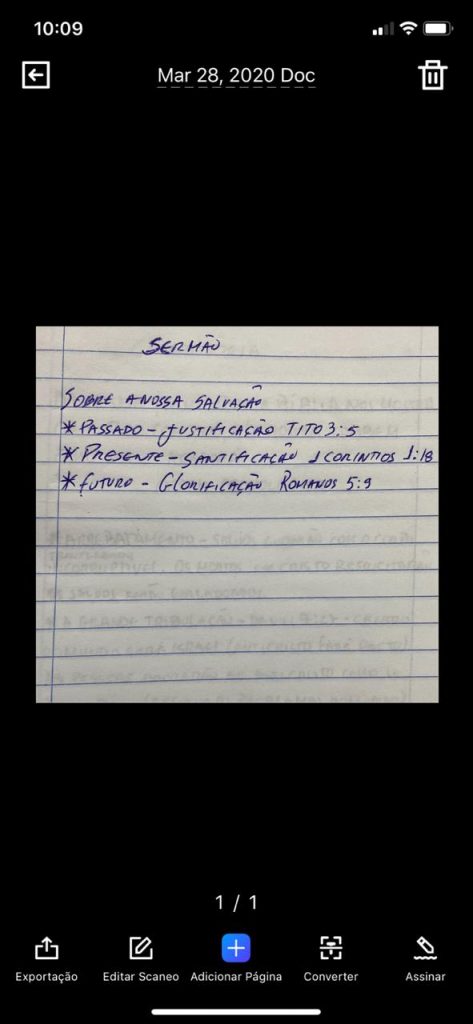 10:09
Mar 28, 2020 Doc
SERMÃO
SOBRE A NOSSA SALVAÇÃO
* PASSADO - JUSTIFICAÇÃO TITO 3:5
* PRESENTE - SANTIFICAÇÃO 1 CORINTIOS 1:18
* FUTURO - GLORIFICAÇÃO ROMANOS 5:9
1 / 1
Exportação Editar Scaneo Adicionar Página Converter Assinar